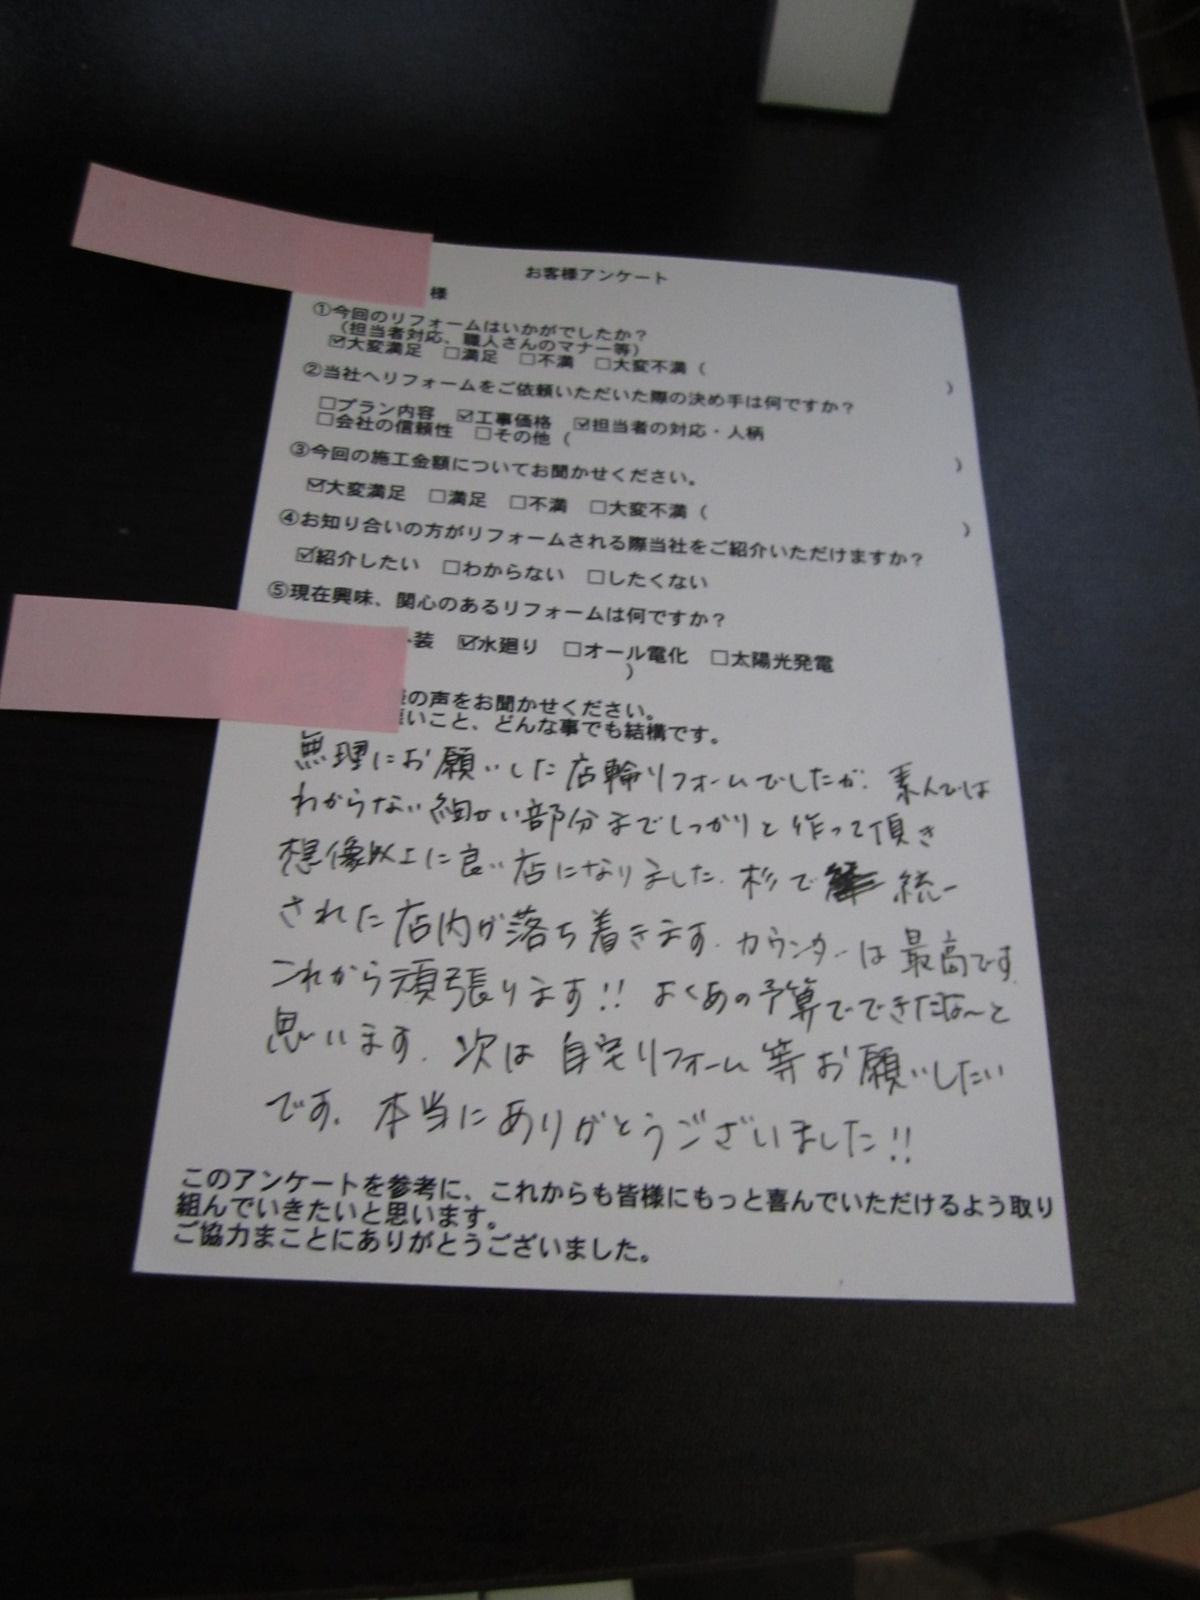 お客様アンケート
様
①今回のリフォームはいかがでしたか？
（担当者対応、職人さんのマナー等）
☑大変満足 □満足 □不満 □大変不満（ ）
②当社へリフォームをご依頼いただいた際の決め手は何ですか？
□プラン内容 ☑工事価格 ☑担当者の対応・人柄
□会社の信頼性 □その他（ ）
③今回の施工金額についてお聞かせください。
☑大変満足 □満足 □不満 □大変不満（ ）
④お知り合いの方がリフォームされる際当社をご紹介いただけますか？
☑紹介したい □わからない □したくない
⑤現在興味、関心のあるリフォームは何ですか？
装 ☑水廻り □オール電化 □太陽光発電
）
の声をお聞かせください。
いこと、どんな事でも結構です。
無理にお願いした店輪リフォームでしたが、素人では
わからない細かい部分までしっかりと作って頂き
想像以上に良い店になりました。杉で 統一
された店内が落ち着きます。カウンターは最高です。
これから頑張ります!! よくあの予算でできたな〜と
思います。次は自宅リフォーム等お願いしたい
です。本当にありがとうございました!!
このアンケートを参考に、これからも皆様にもっと喜んでいただけるよう取り
組んでいきたいと思います。
ご協力まことにありがとうございました。